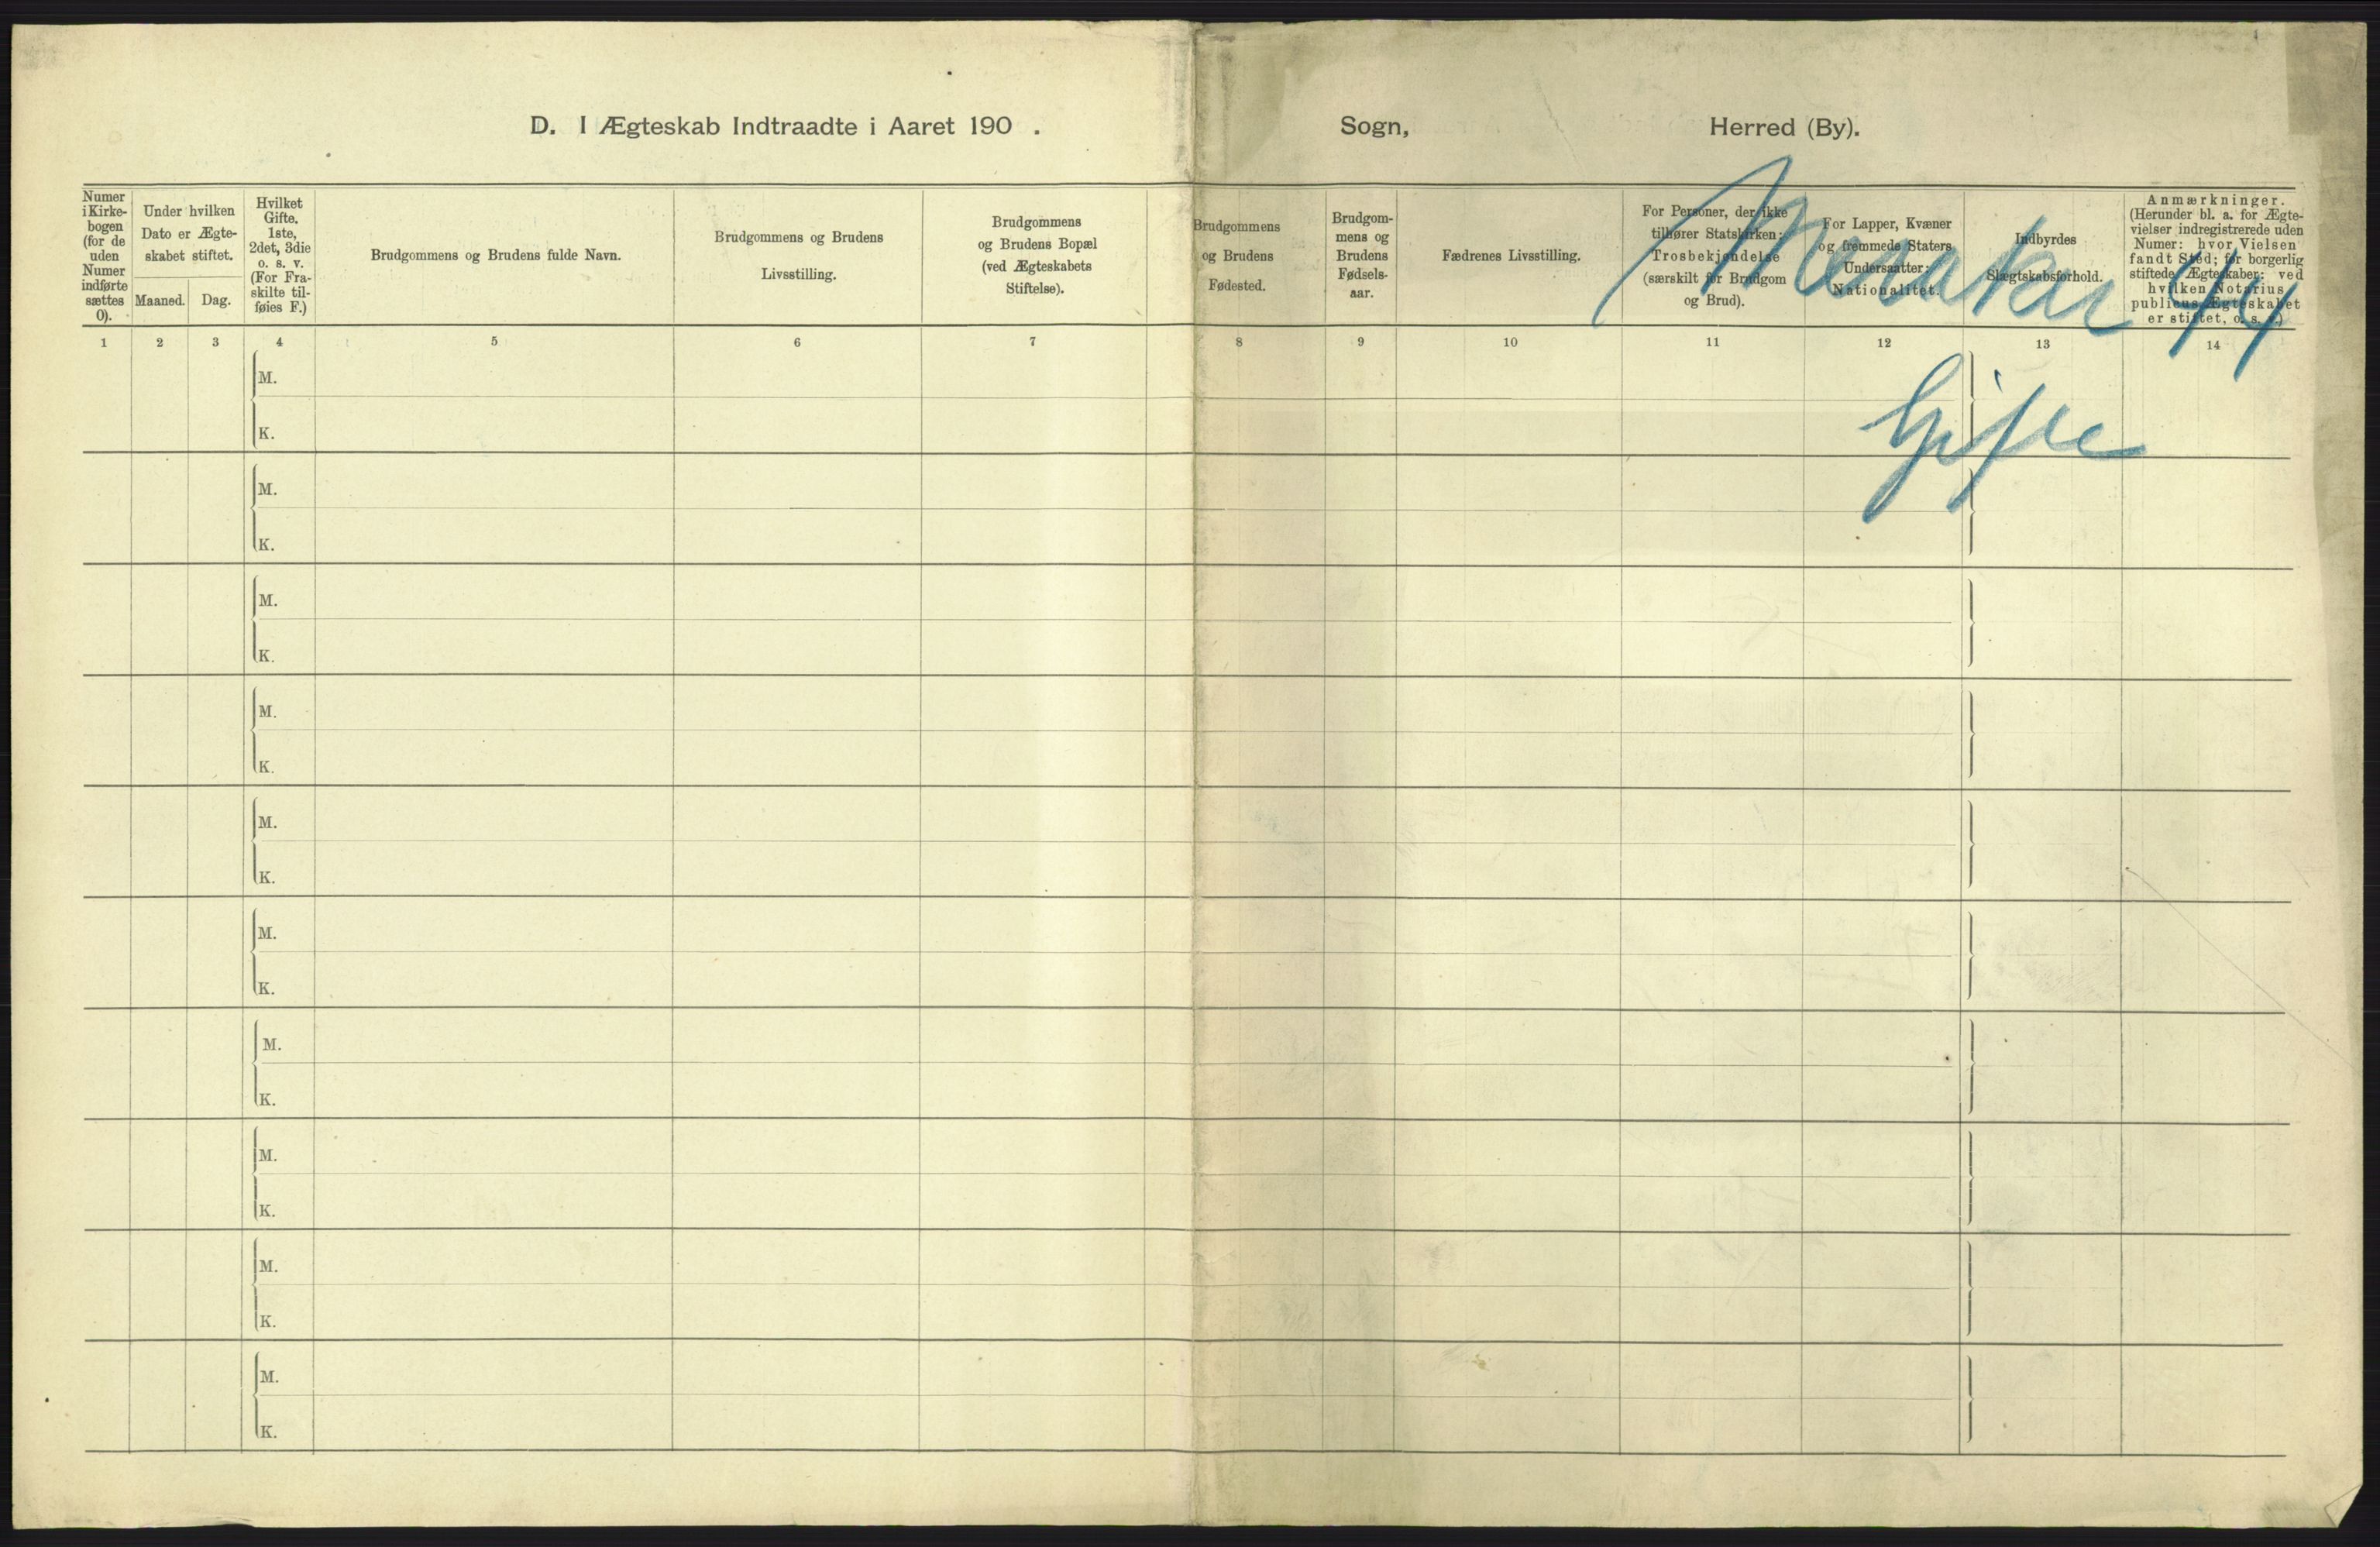 D. I Ægteskab Indtraadte i Aaret 190 . Sogn, Herred (By).
Numer
i Kirke-
bogen
(for de
uden
Numer
indførte
sættes
0).
Under hvilken
Dato er Ægte-
skabet stiftet.
Maaned. Dag.
Hvilket
Gifte,
1ste,
2det, 3die
o. s. v.
(For Fra-
skilte til-
føies F.)
Brudgommens og Brudens fulde Navn.
Brudgommens og Brudens
Livsstilling.
Brudgommens
og Brudens Bopæl
(ved Ægteskabets
Stiftelse).
Brudgommens
og Brudens
Fødested.
Brudgom-
mens og
Brudens
Fødsels-
aar.
Fædrenes Livsstilling.
For Personer, der ikke
tilhører Statskirken:
Trosbekjendelse
(særskilt for Brudgom
og Brud).
For Lapper, Kvæner
og fremmede Staters
Undersaatter:
Nationalitet.
Indbyrdes
Slægtskabsforhold.
Anmærkninger.
(Herunder bl. a. for Ægte-
vielser indregistrerede uden
Numer: hvor Vielsen
fandt Sted; for borgerlig
stiftede Ægteskaber: ved
hvilken Notarius
publicus Ægteskabet
er stiftet, o. s. v.)
Meraker 44
1 2 3 4 5 6 7 8 9 10 11 12 13 14
Gifte
M.
K.
M.
K.
M.
K.
M.
K.
M.
K.
M.
K.
M.
K.
M.
K.
M.
K.
M.
K.